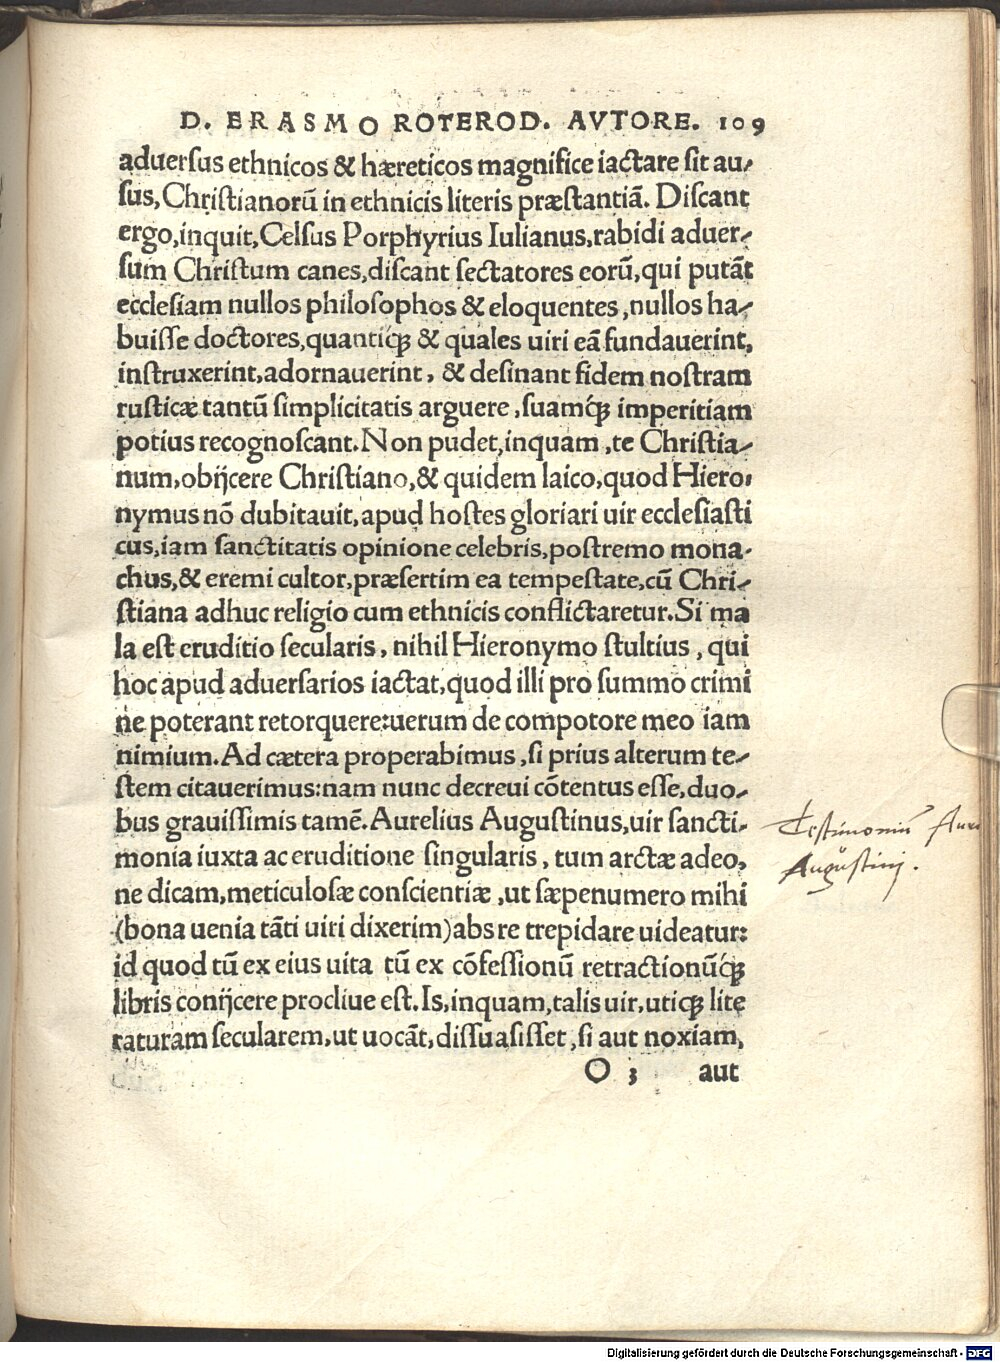 D. ERASMO ROTEROD. AVTORE. 109
aduerſus ethnicos & hæreticos magnifice iactare ſit au-
ſus, Chriſtianorũ in ethnicis literis præſtantiã. Diſcant
ergo, inquit, Celſus Porphyrius Iulianus, rabidi aduer-
ſum Chriſtum canes, diſcant ſectatores eorũ, qui putãt
eccleſiam nullos philoſophos & eloquentes, nullos ha-
buiſſe doctores, quantiq́ꝫ & quales uiri eã fundauerint,
inſtruxerint, adornauerint, & deſinant fidem noſtram
ruſticæ tantũ ſimplicitatis arguere, ſuamq́ꝫ imperitiam
potius recognoſcant. Non pudet, inquam, te Chriſtia-
num, obijcere Chriſtiano, & quidem laico, quod Hiero-
nymus nõ dubitauit, apud hoſtes gloriari uir eccleſiaſti
cus, iam ſanctitatis opinione celebris, poſtremo mona-
chus, & eremi cultor, præſertim ea tempeſtate, cũ Chri-
ſtiana adhuc religio cum ethnicis conflictaretur. Si ma
la est eruditio ſecularis, nihil Hieronymo ſtultius, qui
hoc apud aduerſarios iactat, quod illi pro ſummo crimi
ne poterant retorquere: uerum de compotore meo iam
nimium. Ad cætera properabimus, ſi prius alterum te-
ſtem citauerimus: nam nunc decreui cõtentus eſſe, duo-
bus grauiſſimis tamẽ. Aurelius Auguſtinus, uir ſancti-
monia iuxta ac eruditione ſingularis, tum arctæ adeo,
ne dicam, meticuloſæ conſcientiæ, ut ſæpenumero mihi
(bona uenia tãti uiri dixerim) abs re trepidare uideatur:
id quod tũ ex eius uita tũ ex cõfeſſionũ retractionũq́ꝫ
libris conijcere procliue eſt. Is, inquam, talis uir, utiqꝫ lite
raturam ſecularem, ut uocãt, diſſuaſiſſet, ſi aut noxiam,
O 3 aut
Teſtimoniũ Aure
Auguſtinj.
Digitalisierung gefördert durch die Deutsche Forschungsgemeinschaft - DFG